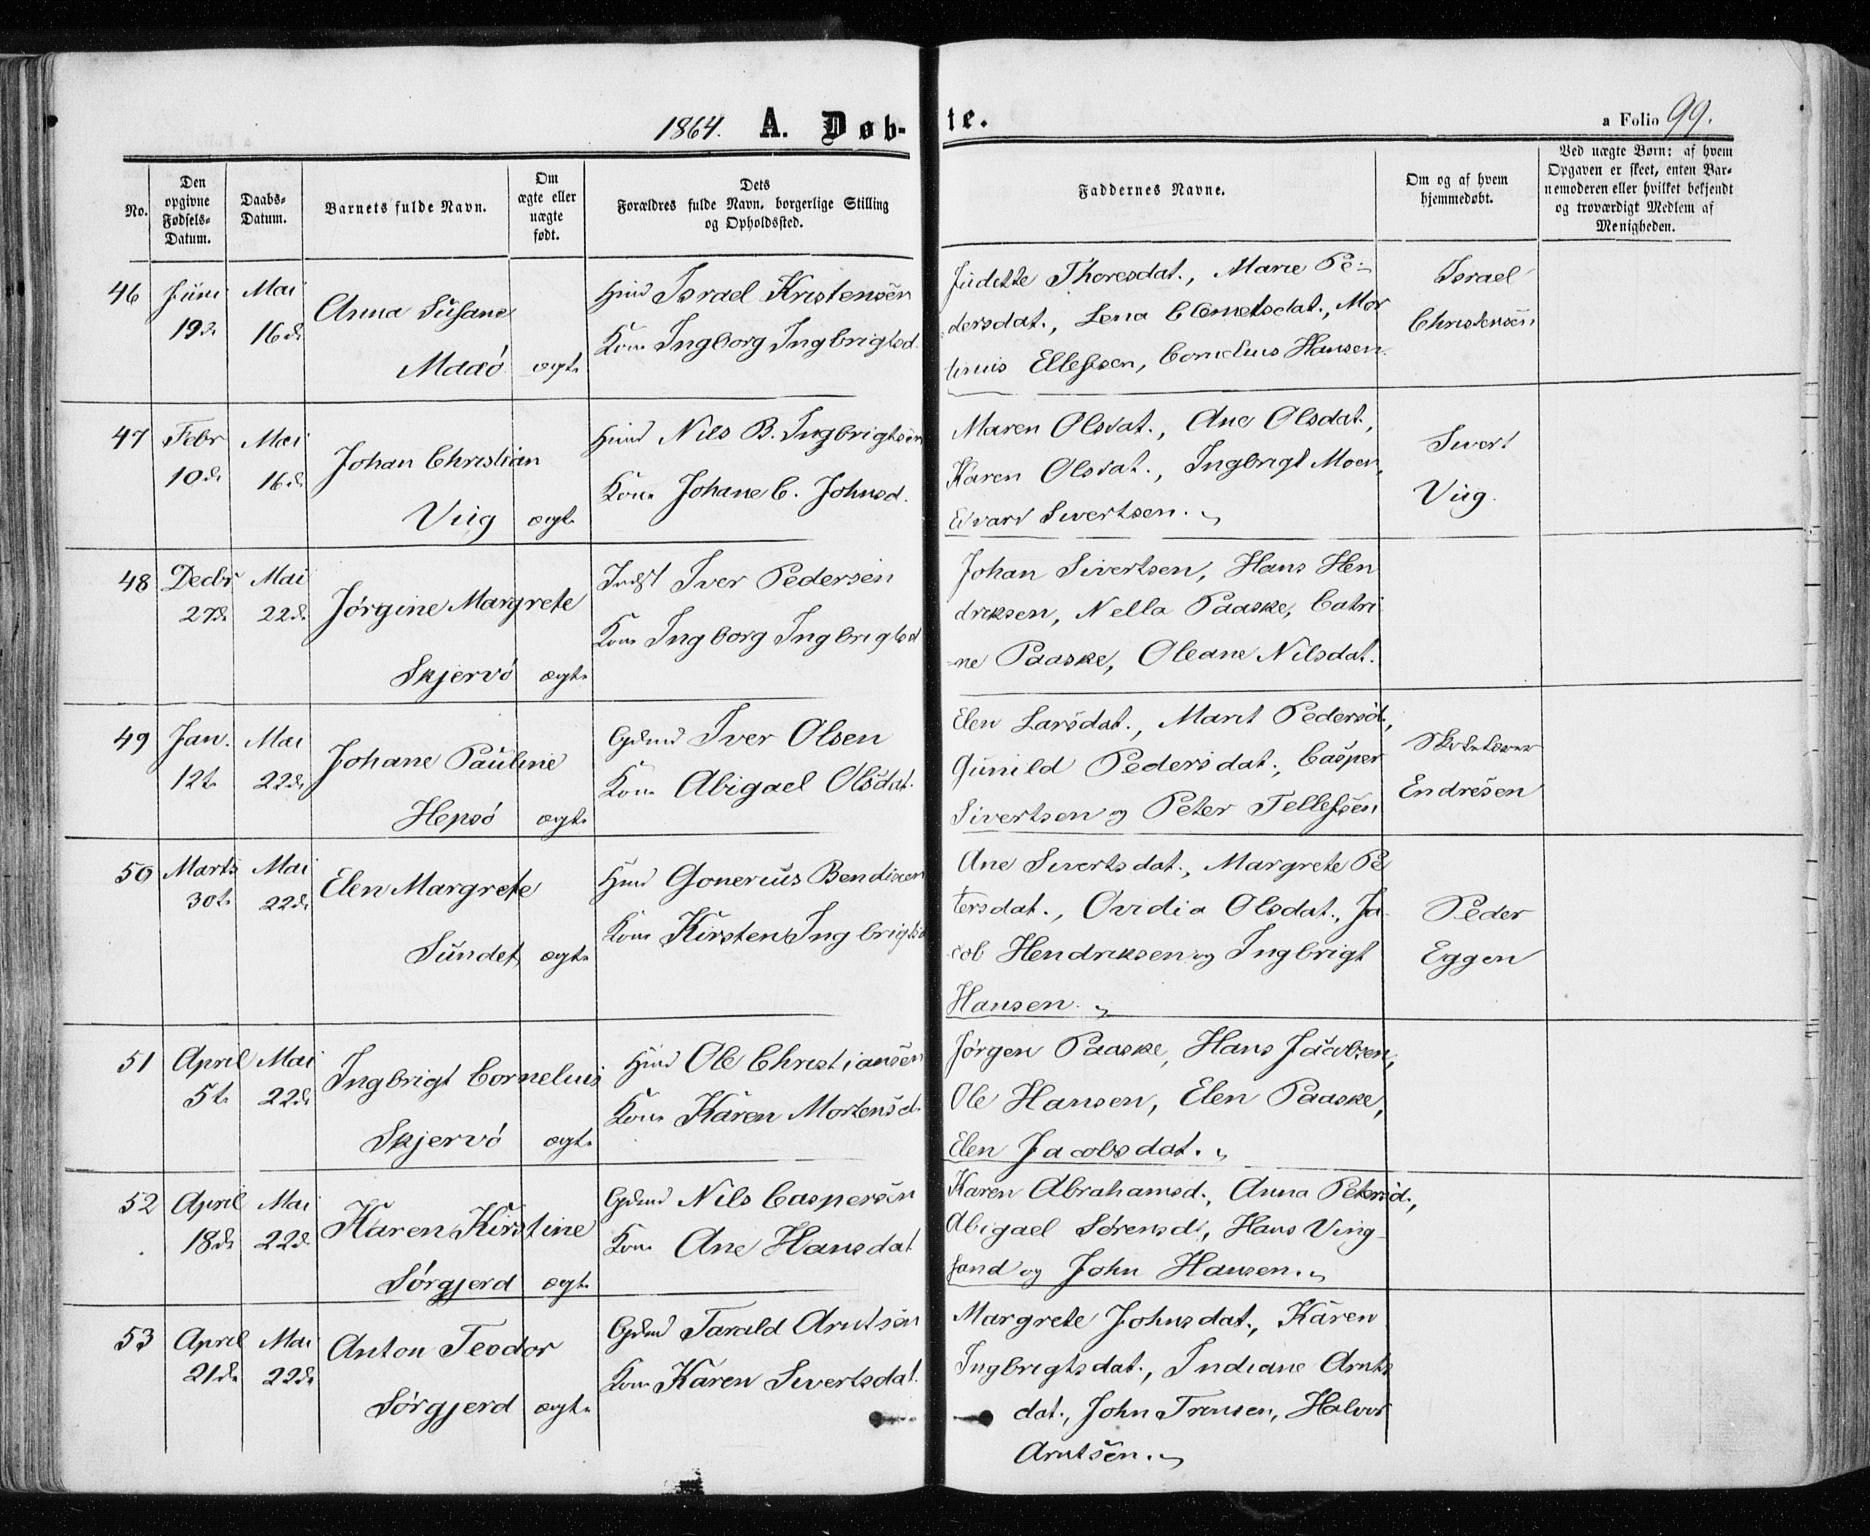 1864. A. Døb-te. a Folio 99.
No.
Den opgivne Fødsels-Datum.
Daabs-Datum.
Barnets fulde Navn.
Om ægte eller uægte født.
Dets Forældres fulde Navn, borgerlige Stilling og Opholdssted.
Faddernes Navne.
Om og af hvem hjemmedøbt.
Ved uægte Børn: af hvem Opgaven er skeet, enten Barnemoderen eller hvilket bekjendt og troværdigt Medlem af Menigheden.
46 Juni 19d. Mai 16d.
Anna Susane
Madsø ægte
Hmd Israel Kristensen
Kone Ingborg Ingbrigtsd.
Judette Thoresdat., Marie Pe-
dersdat., Lena Clemetsdat., Mor
tinus Ellefsen, Cornelius Hansen.
Israel
Christensen
47 Febr 10d. Mai 16d.
Johan Christian
Viig ægte
Hmd Nils B. Ingbrigtsen
Kone Johane C. Johnsd.
Maren Olsdat., Ane Olsdat.,
Karen Olsdat., Ingbrigt Moen,
Edvard Sivertsen.
Sivert
Viig.
48 Decbr 27d. Mai 22d.
Jørgine Margrete
Skjervø ægte
Indst Iver Pedersen
Kone Ingborg Ingbrigtsd
Johan Sivertsen, Hans Hen
driksen, Nella Paaske, Catri
-ne Paaske, Oleane Nilsdat.
49 Jan. 12t. Mai 22d.
Johane Pauline
Hepsø ægte
Gdmd Iver Olsen
Kone Abigael Olsdat.
Elen Larsdat., Marit Pedersd.,
Gunild Pedersdat., Casper
Sivertsen og Peter Tellefsen
Skolelærer
Endresen
50 Marts 30t. Mai 22d.
Elen Margrete
Sundet ægte
Hmd Gonerius Bendixen
Kone Kirsten Ingbrigtsd
Ane Sivertsdat., Margrete Pe
tersdat., Ovidia Olsdat., Ja-
cob Hendriksen og Ingbrigt
Hansen.
Peder
Eggen
51 April 5t. Mai 22d.
Ingbrigt Cornelius
Skjervø ægte
Hmd Ole Christiansen
Kone Karen Mortensd.
Jørgen Paaske, Hans Jacobsen,
Ole Hansen, Elen Paaske,
Elen Jacobsdat.
52 April 18d. Mai 22d.
Karen Kirstine
Sørgjerd ægte
Gdmd Nils Caspersen
Kone Ane Hansdat
Karen Abrahamsd., Anna Petersd.,
Abigael Sørensd., Hans Ving-
sand og John Hansen.
53 April 21d. Mai 22d.
Anton Teodor
Sørgjerd ægte
Gdmd Tarald Arntsen
Kone Karen Sivertsdat.
Margrete Johnsdat., Karen
Ingbrigtsdat., Indiane Arnts
dat., John Tronsen, Halvor
Arntsen.